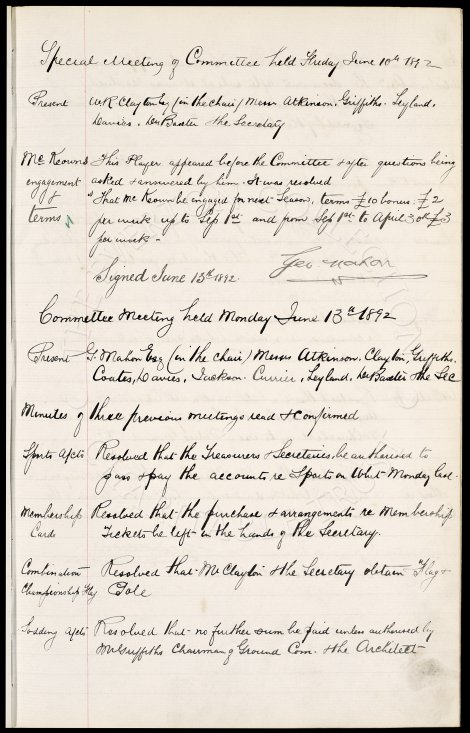 Special Meeting of Committee held Friday June 10th 1892
Present W.R. Clayton Esq (in the chair) Messrs Atkinson. Griffiths. Leyland,
Davies. Dr Baxter & the Secretary
McKeowns This Player appeared before the Committee & after questions being
engagement asked & answered by him. It was resolved
& That McKeown be engaged for next Season, terms £10 bonus. £2
terms per week up to Sep 1st and from Sep 1st to April 30th £3
per week -
Signed June 13th 1892. Geo. Mahon
Committee Meeting held Monday June 13th 1892
Present G. Mahon Esq (in the chair) Messrs Atkinson. Clayton, Griffiths.
Coates, Davies, Jackson. Currier, Leyland, Dr Baxter & the Sec
Minutes of three previous meetings read & confirmed
Sports A/cts Resolved that the Treasurers & Secretaries, be authorised to
pass & pay the accounts re Sports on Whit-Monday last.
Membership Resolved that the purchase & arrangements re Membership
Cards Tickets be left in the hands of the Secretary.
Combination Resolved that Mr Clayton & the Secretary obtain Flag &
Championship Flag Pole
Sodding A/cts Resolved that no further sum be paid unless authorised by
Mr Griffiths Chairman of Ground Com. & the Architect